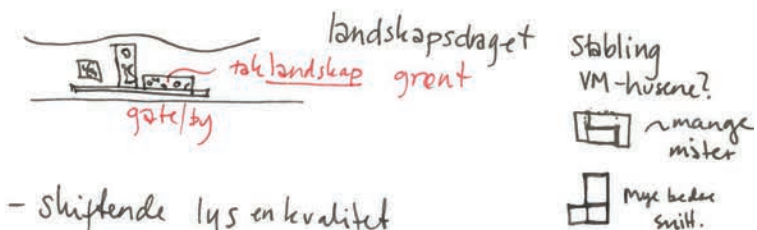 landskapsdraget
taklandskap grønt
gate/by
Stabling
VM-husene?
~mange
mister
Mye bedre
snitt.
- skiftende lys en kvalitet